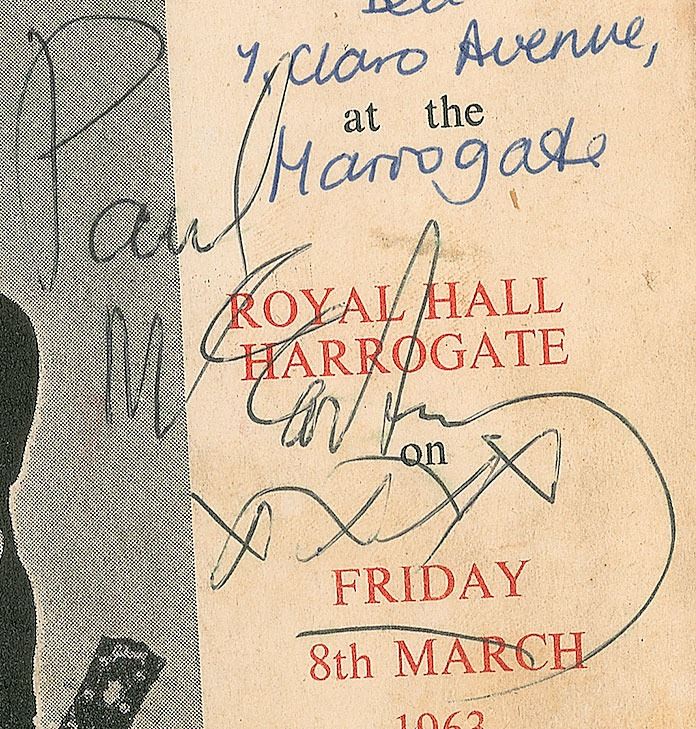 7, Claro Avenue,
at the
Harrogate
Paul
McCartney
ROYAL HALL
HARROGATE
on
xxxx
FRIDAY
8th MARCH
1963